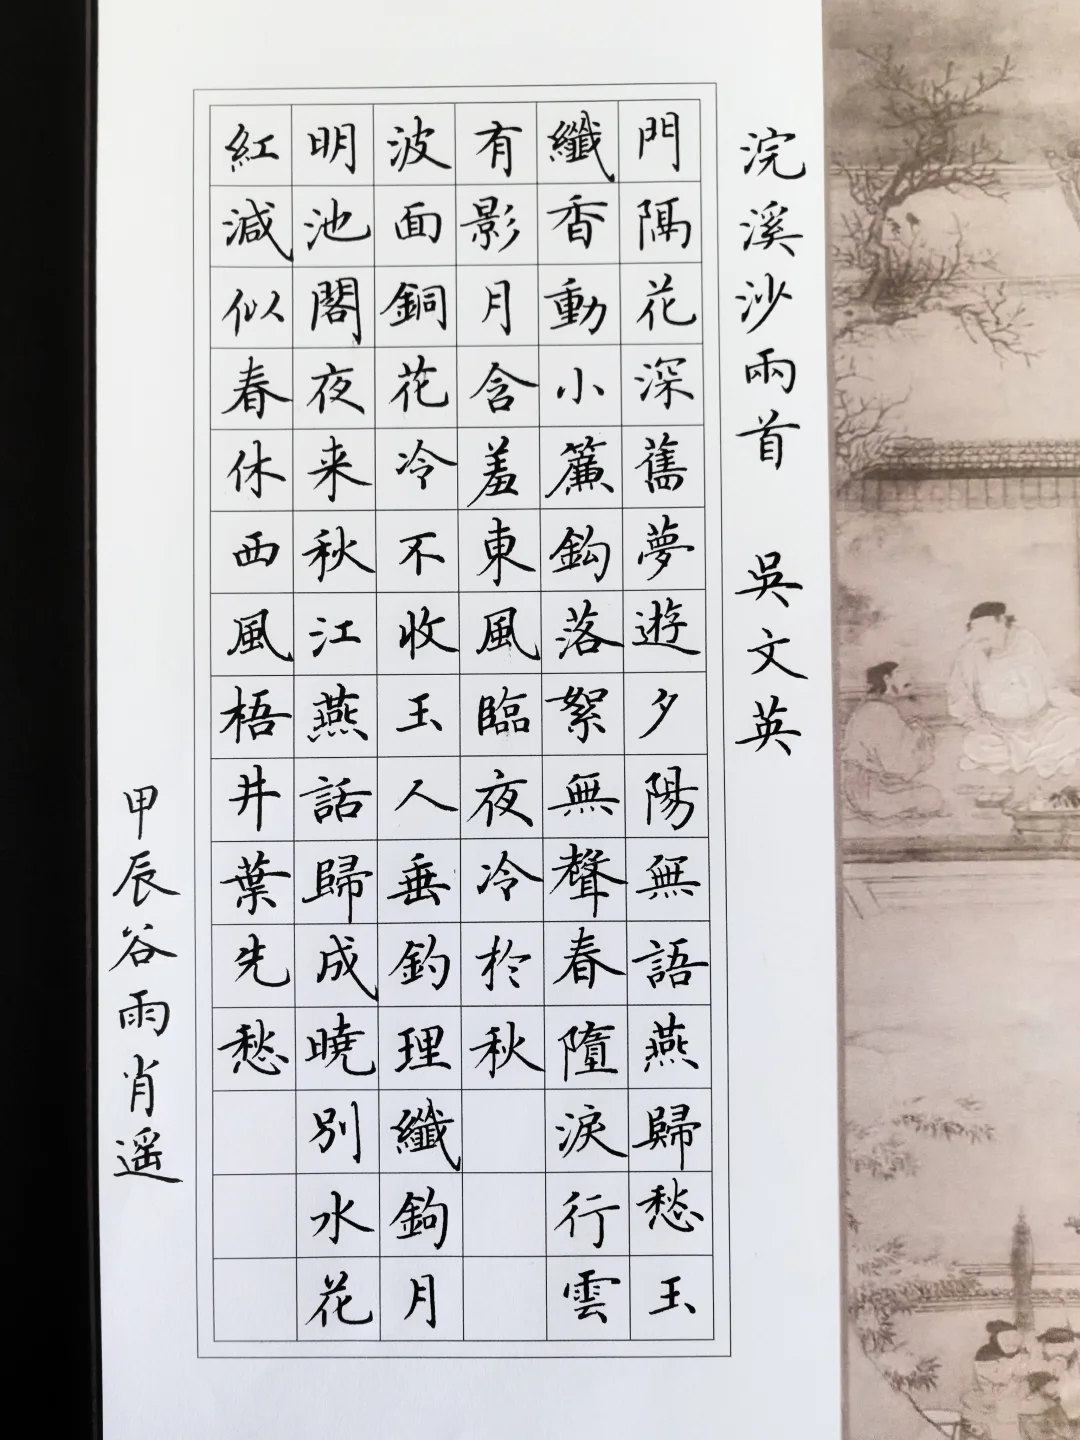 浣溪沙兩首 吳文英
門隔花深舊夢遊夕陽無語燕歸愁玉
纖香動小簾鈎落絮無聲春墮淚行雲
有影月含羞東風臨夜冷於秋
波面銅花冷不收玉人垂釣理纖鉤月
明池閣夜来秋江燕話歸成曉別水花
紅減似春休西風梧井葉先愁
甲辰谷雨肖遥